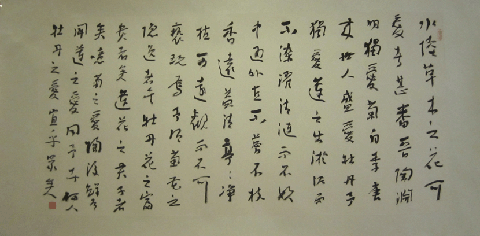 水陸草木之花可
愛者甚蕃晉陶淵
明獨愛菊自李唐
來世人盛愛牡丹予
獨愛蓮之出淤泥而
不染濯清漣而不妖
中通外直不蔓不枝
香遠益清亭亭淨
植可遠觀而不可
褻玩焉予謂菊花之
隱逸者也牡丹花之富
貴者矣蓮花之君子者
矣噫菊之愛陶後鮮有
聞蓮之愛同予者何人
牡丹之愛宜乎眾矣